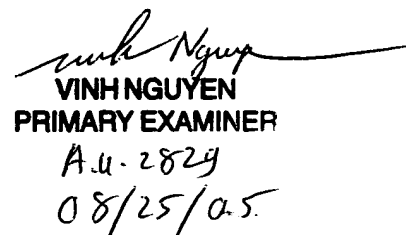 Vinh Nguyen
VINH NGUYEN
PRIMARY EXAMINER
A.U. 2829
08/25/05.